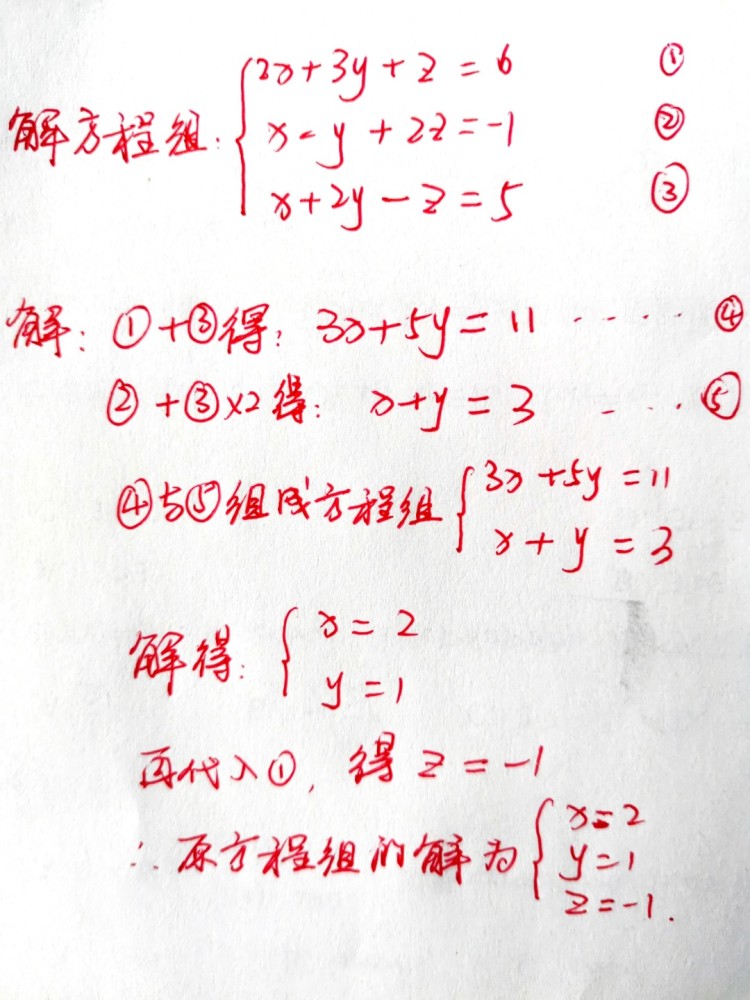 解方程组: { 2x+3y+z=6 ①
x-y+2z=-1 ②
x+2y-z=5 ③
解: ①+③得: 3x+5y=11 ····· ④
②+③×2得: x+y=3 ···· ⑤
④与⑤组成方程组 { 3x+5y=11
x+y=3
解得: { x=2
y=1
再代入①, 得 z=-1
∴原方程组的解为 { x=2
y=1
z=-1.